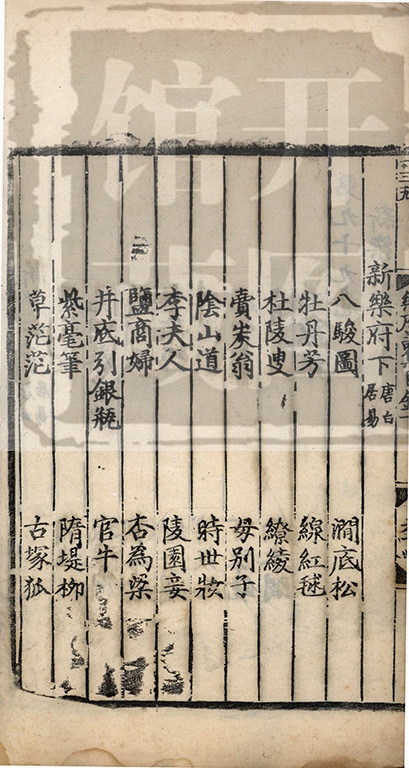 新樂府下 唐白居易
八駿圖 澗底松
牡丹芳 線紅毬
杜陵叟 繚綾
賣炭翁 母別子
陰山道 時世妝
李夫人 陵園妾
鹽商婦 杏為梁
井底引銀瓶 官牛
紫毫筆 隋堤柳
草茫茫 古塚狐